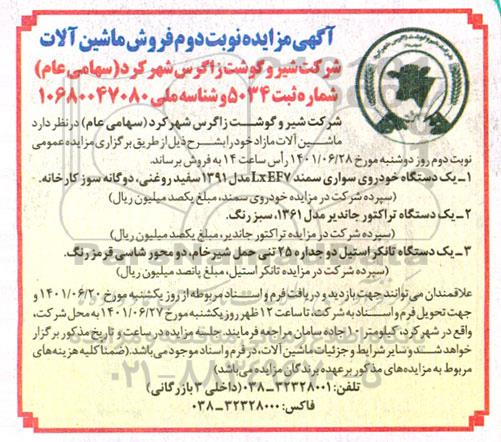 آگهی مزایده نوبت دوم فروش ماشین آلات
شرکت شیر و گوشت زاگرس شهرکرد (سهامی عام)
شماره ثبت ۵۰۳۴ و شناسه ملی ۱۰۶۸۰۰۴۷۰۸۰
شرکت شیر و گوشت زاگرس شهرکرد (سهامی عام) در نظر دارد
ماشین آلات مازاد خود را بشرح ذیل از طریق برگزاری مزایده عمومی
نوبت دوم روز دوشنبه مورخ ۱۴۰۱/۰۶/۲۸ رأس ساعت ۱۴ به فروش برساند.
۱ـ یک دستگاه خودروی سواری سمند LxEF۷ مدل ۱۳۹۱ سفید روغنی، دوگانه سوز کارخانه.
(سپرده شرکت در مزایده خودروی سمند، مبلغ یکصد میلیون ریال)
۲ـ یک دستگاه تراکتور جاندیر مدل ۱۳۶۱، سبز رنگ.
(سپرده شرکت در مزایده تراکتور جاندیر، مبلغ یکصد میلیون ریال)
۳ـ یک دستگاه تانکر استیل دو جداره ۲۵ تنی حمل شیر خام، دو محور شاسی قرمز رنگ.
(سپرده شرکت در مزایده تانکر استیل، مبلغ پانصد میلیون ریال)
علاقمندان می‌توانند جهت بازدید و دریافت فرم و اسناد مربوطه از روز یکشنبه مورخ ۱۴۰۱/۰۶/۲۰ و
جهت تحویل فرم و اسناد به شرکت، تا ساعت ۱۲ ظهر روز یکشنبه مورخ ۱۴۰۱/۰۶/۲۷ به محل شرکت،
واقع در شهرکرد، کیلومتر ۱۰ جاده سامان مراجعه فرمایند. جلسه مزایده در ساعت و تاریخ مذکور برگزار
خواهد شد و سایر شرایط و جزئیات ماشین آلات، در فرم و اسناد موجود می‌باشد. (ضمنا کلیه هزینه‌های
مربوط به مزایده‌های مذکور بر عهده برندگان مزایده می‌باشد)
تلفن: ۳۲۳۲۸۰۰۱-۰۳۸ (داخلی ۲ بازرگانی)
فاکس: ۳۲۳۲۸۰۰۰-۰۳۸